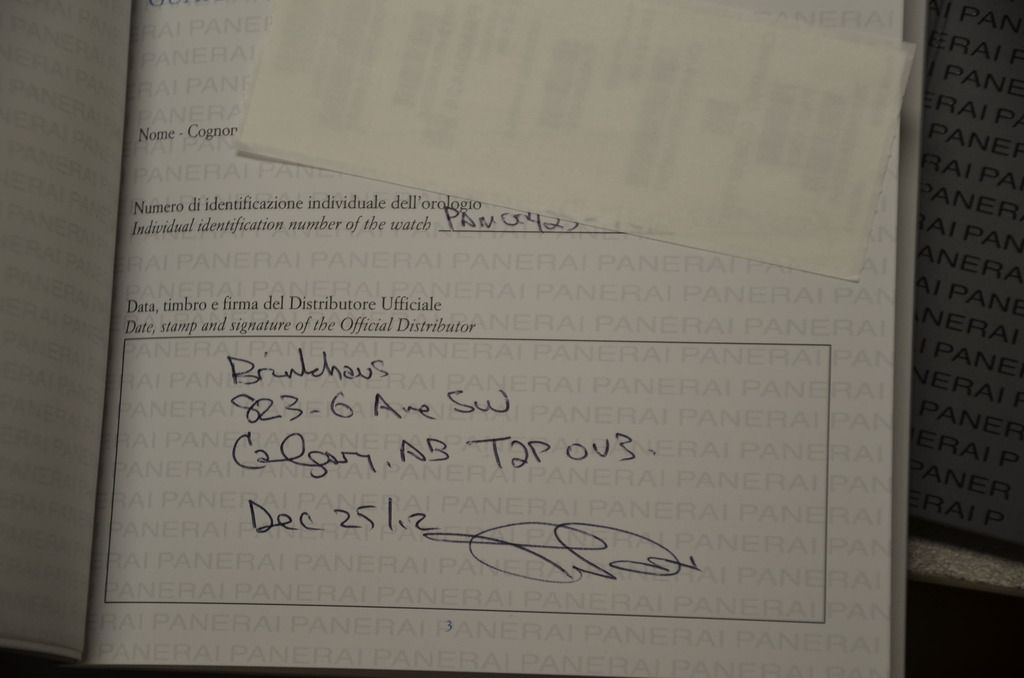 Nome - Cognor
Numero di identificazione individuale dell'orologio
Individual identification number of the watch PAM00422
Data, timbro e firma del Distributore Ufficiale
Date, stamp and signature of the Official Distributor
Brinkhaus
823-6 Ave SW
Calgary, AB T2P 0V3.
Dec 25/12
3